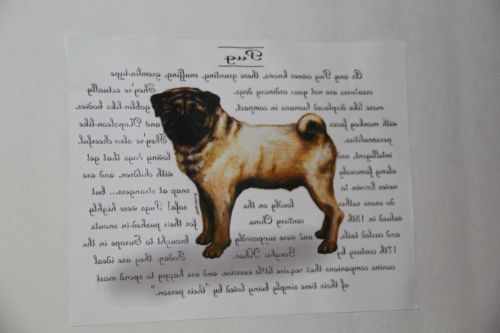 Pug
As any Pug owner knows, these grunting, snuffling, gremlin-type
creatures are not your ordinary dogs. They're actually
more like displaced humans in compact, goblin-like bodies,
with monkey faces and Napoleon-like
personalities. They're also cheerful,
intelligent, and loving dogs that get
along famously with children, and are
never known to snap at strangers ... but
do snore rather loudly on the sofa! Pugs were highly
valued in 18th century China for their pushed-in snouts
and curled tails, and were supposedly brought to Europe in the
17th century by Genghis Khan. Today, they are ideal
canine companions that require little exercise and are happy to spend most
of their time simply being loved by "their person."